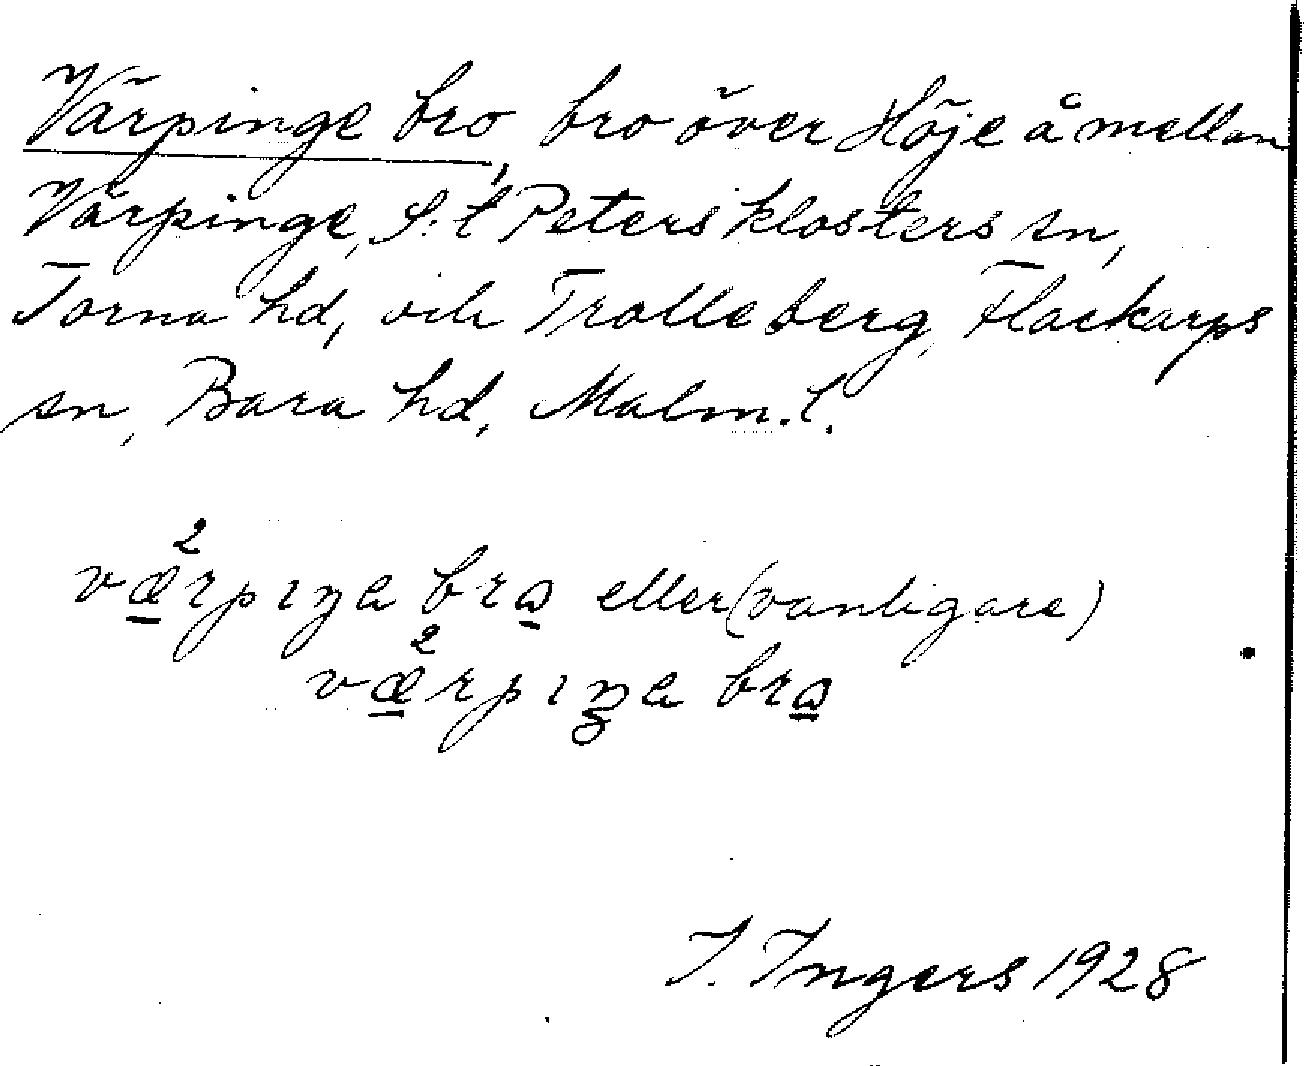 Värpinge bro, bro över Höje å mellan
Värpinge, S:t Peters klosters sn,
Torna hd, och Trolleberg, Flackarps
sn, Bara hd, Malm. l.
væ̱²rpıŋa bra̱ eller (vanligare)
væ̱²rpıŋa bra̱
I. Ingers 1928